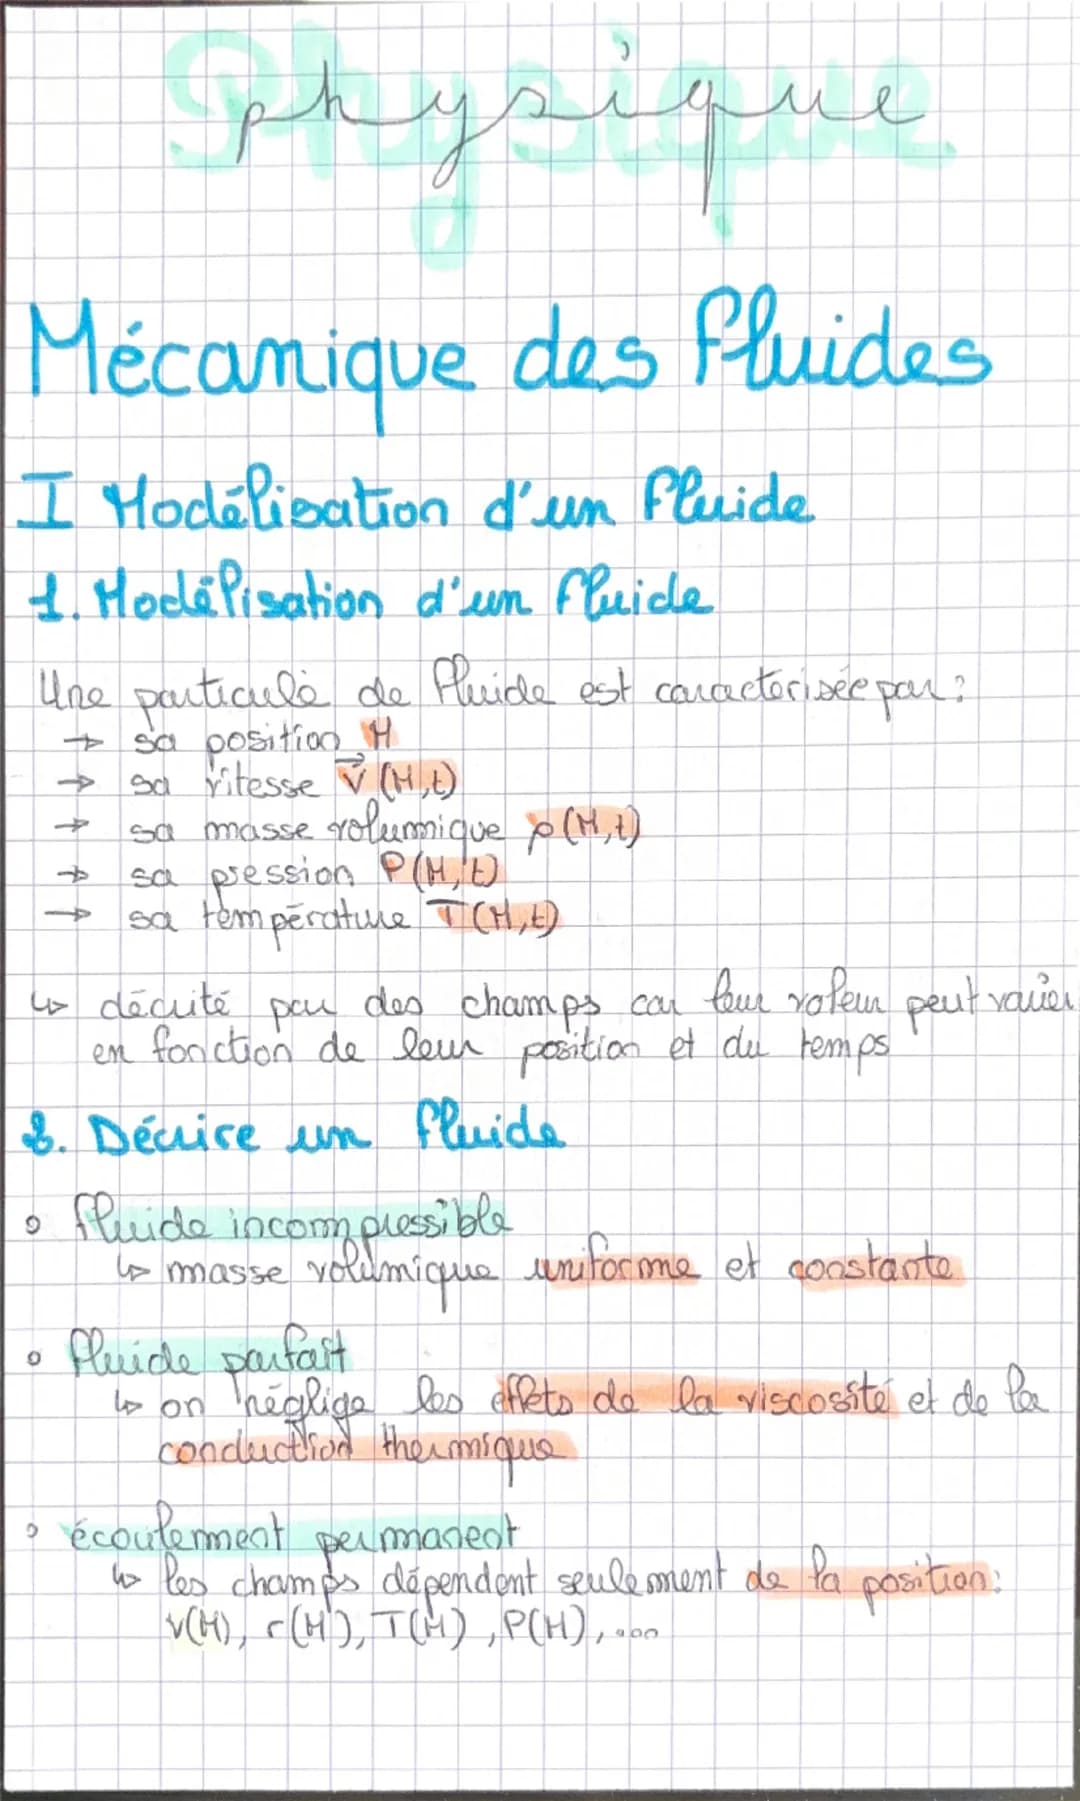 Physique
Mécanique des fluides
I Modélisation d'un fluide
1. Modélisation d'un fluide
Une particule de fluide est caractérisée par :
→ sa position M
→ sa vitesse v⃗ (M,t)
→ sa masse volumique ρ(M,t)
→ sa pression P(M,t)
→ sa température T(M,t)
↳ décrité par des champs car leur valeur peut varier
en fonction de leur position et du temps
2. Décrire un fluide
• fluide incompressible
↳ masse volumique uniforme et constante
• fluide parfait
↳ on néglige les effets de la viscosité et de la
conduction thermique
• écoulement permanent
↳ les champs dépendent seulement de la position :
v(M), r(M), T(M), P(M), ...